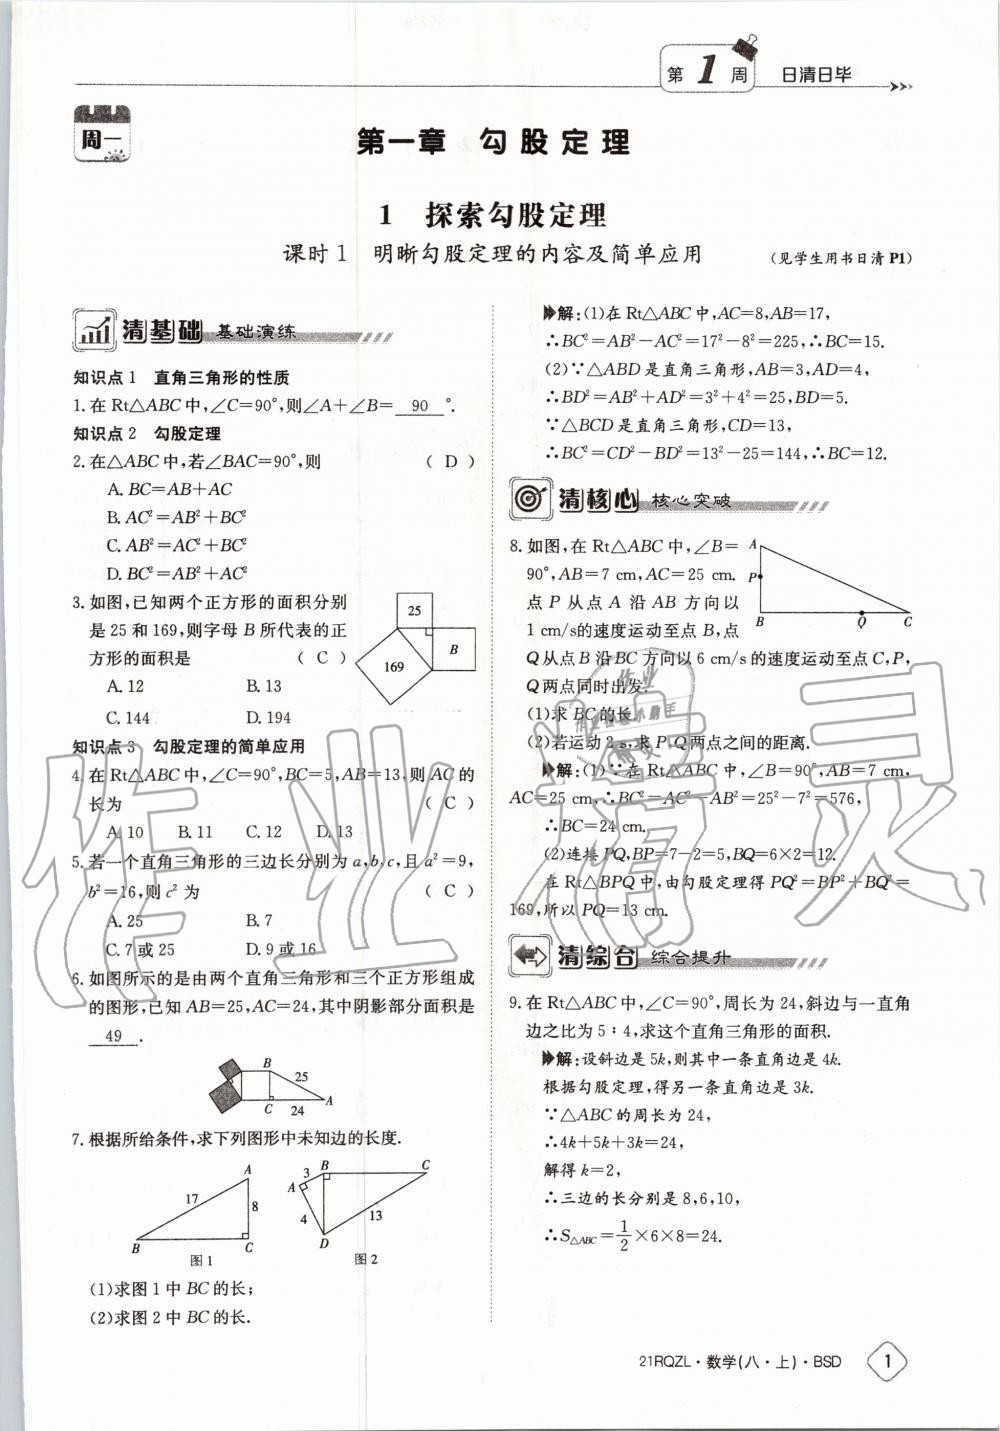 第 1 周 日清日毕
周一
第一章 勾股定理
1 探索勾股定理
课时1 明晰勾股定理的内容及简单应用 (见学生用书日清P1)
清基础 基础演练
知识点1 直角三角形的性质
1.在Rt△ABC中,∠C=90°,则∠A+∠B= 90 °.
知识点2 勾股定理
2.在△ABC中,若∠BAC=90°,则 ( D )
A. BC=AB+AC
B. AC²=AB²+BC²
C. AB²=AC²+BC²
D. BC²=AB²+AC²
3.如图,已知两个正方形的面积分别
是25和169,则字母B所代表的正
方形的面积是 ( C )
A. 12 B. 13
C. 144 D. 194
25
169
B
知识点3 勾股定理的简单应用
4.在Rt△ABC中,∠C=90°,BC=5,AB=13,则AC的
长为 ( C )
A. 10 B. 11 C. 12 D. 13
5.若一个直角三角形的三边长分别为a,b,c,且a²=9,
b²=16,则c²为 ( C )
A. 25 B. 7
C. 7或25 D. 9或16
6.如图所示的是由两个直角三角形和三个正方形组成
的图形,已知AB=25,AC=24,其中阴影部分面积是
49 .
B
25
A
C 24
7.根据所给条件,求下列图形中未知边的长度.
A
17
8
B C
图1
3 B C
A
4
13
D
图2
(1)求图1中BC的长;
(2)求图2中BC的长.
解:(1)在Rt△ABC中,AC=8,AB=17,
∴BC²=AB²-AC²=17²-8²=225,∴BC=15.
(2)∵△ABD是直角三角形,AB=3,AD=4,
∴BD²=AB²+AD²=3²+4²=25,BD=5.
∵△BCD是直角三角形,CD=13,
∴BC²=CD²-BD²=13²-25=144,∴BC=12.
清核心 核心突破
8.如图,在Rt△ABC中,∠B=
90°,AB=7 cm,AC=25 cm.
点P从点A沿AB方向以
1 cm/s的速度运动至点B,点
Q从点B沿BC方向以6 cm/s的速度运动至点C,P,
Q两点同时出发.
A
P
B Q C
(1)求BC的长.
(2)若运动2 s,求P,Q两点之间的距离.
解:(1)∵在Rt△ABC中,∠B=90°,AB=7 cm,
AC=25 cm,∴BC²=AC²-AB²=25²-7²=576,
∴BC=24 cm.
(2)连接PQ,BP=7-2=5,BQ=6×2=12.
在Rt△BPQ中,由勾股定理得PQ²=BP²+BQ²=
169,所以PQ=13 cm.
清综合 综合提升
9.在Rt△ABC中,∠C=90°,周长为24,斜边与一直角
边之比为5∶4,求这个直角三角形的面积.
解:设斜边是5k,则其中一条直角边是4k.
根据勾股定理,得另一条直角边是3k.
∵△ABC的周长为24,
∴4k+5k+3k=24,
解得k=2,
∴三边的长分别是8,6,10,
∴S△ABC=1/2×6×8=24.
21RQZL·数学(八·上)·BSD 1
作业精灵